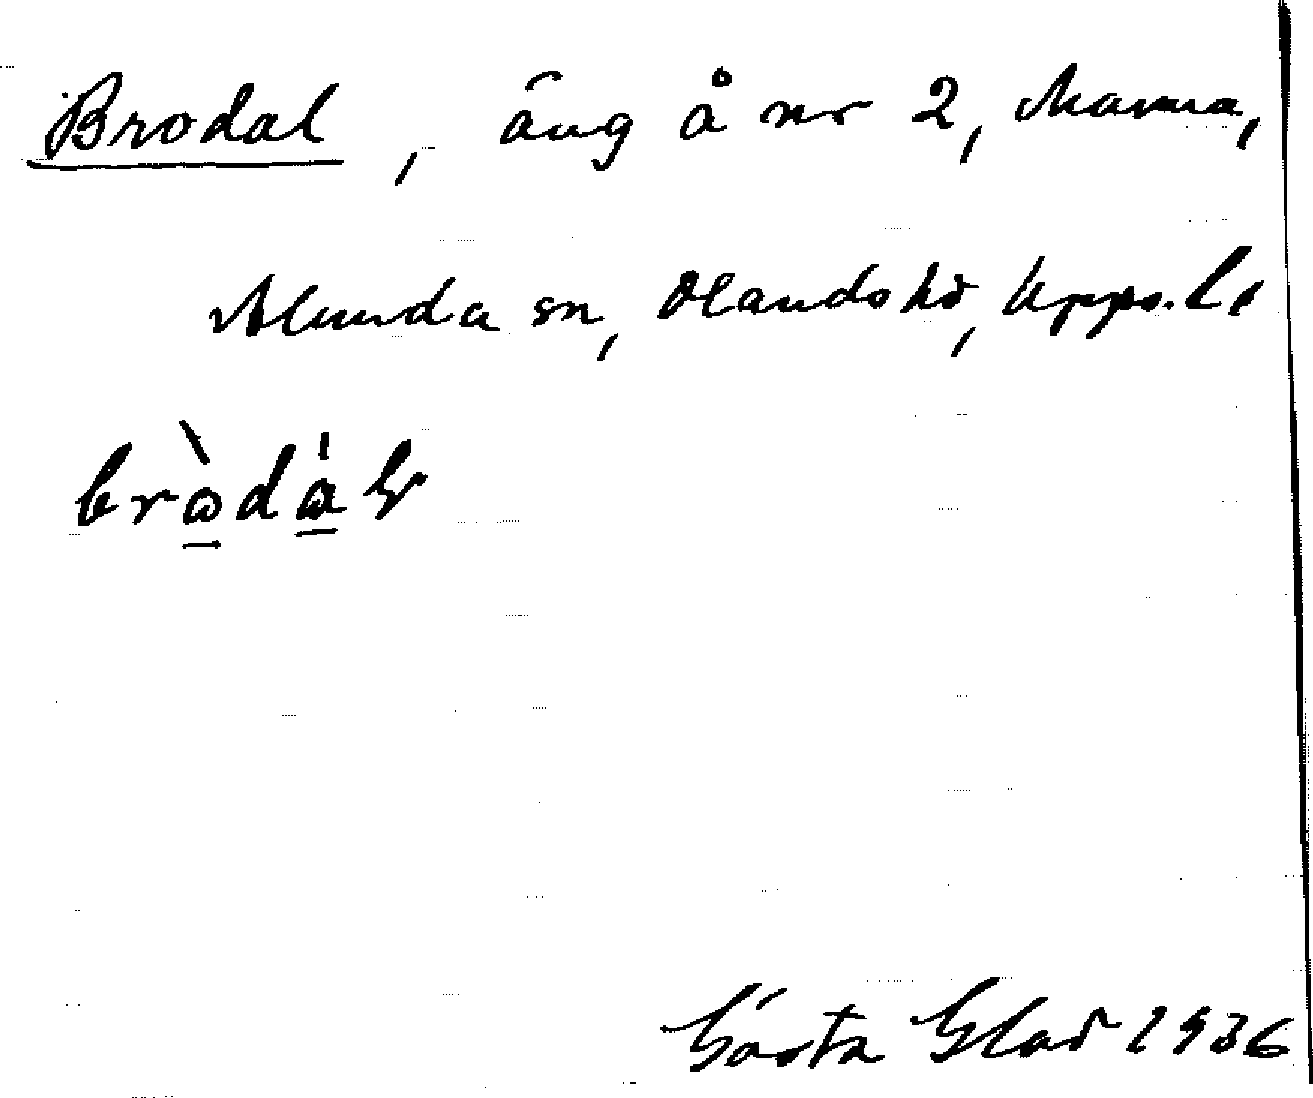 Brodal, äng å nr 2, Marma,
Alunda sn, Olands hd, Upps. l.
bròdàl
Gösta Glad 1936